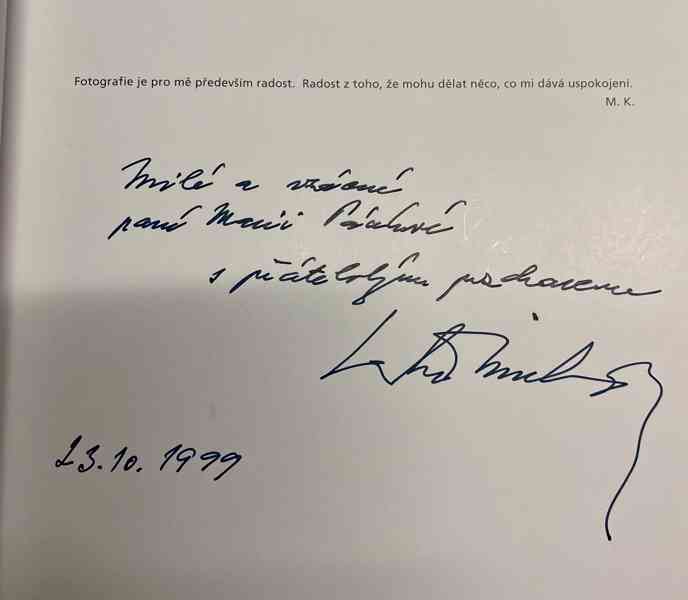 Fotografie je pro mě především radost. Radost z toho, že mohu dělat něco, co mi dává uspokojení.
M. K.
Milé a vzácné
paní Marii
s přátelským pozdravem
23.10. 1999